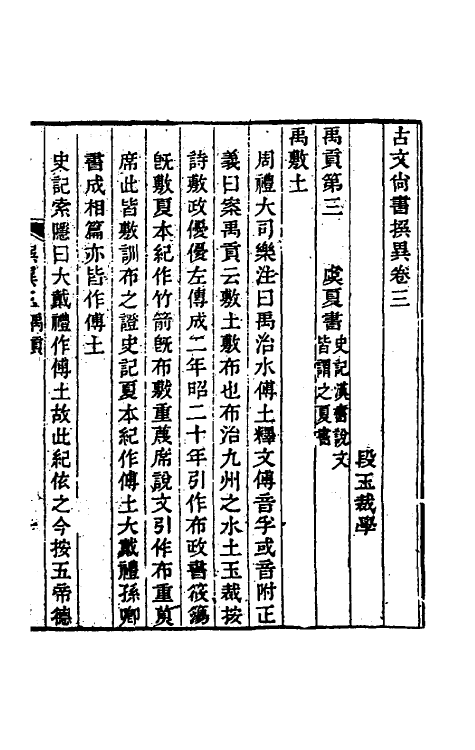 古文尙書撰異卷三
段玉裁學
禹貢第三 虞夏書 史記漢書說文皆謂之夏書
禹敷土
周禮大司樂注曰禹治水傅土釋文傅音孚或音附正
義曰案禹貢云敷土敷布也布治九州之水土玉裁按
詩敷政優優左傳成二年昭二十年引作布政書筱簜
旣敷夏本紀作竹箭旣布敷重蔑席說文引作布重莫
席此皆敷訓布之證史記夏本紀作傅土大戴禮孫卿
書成相篇亦皆作傅土
史記索隱曰大戴禮作傅土故此紀依之今按五帝德
禹貢